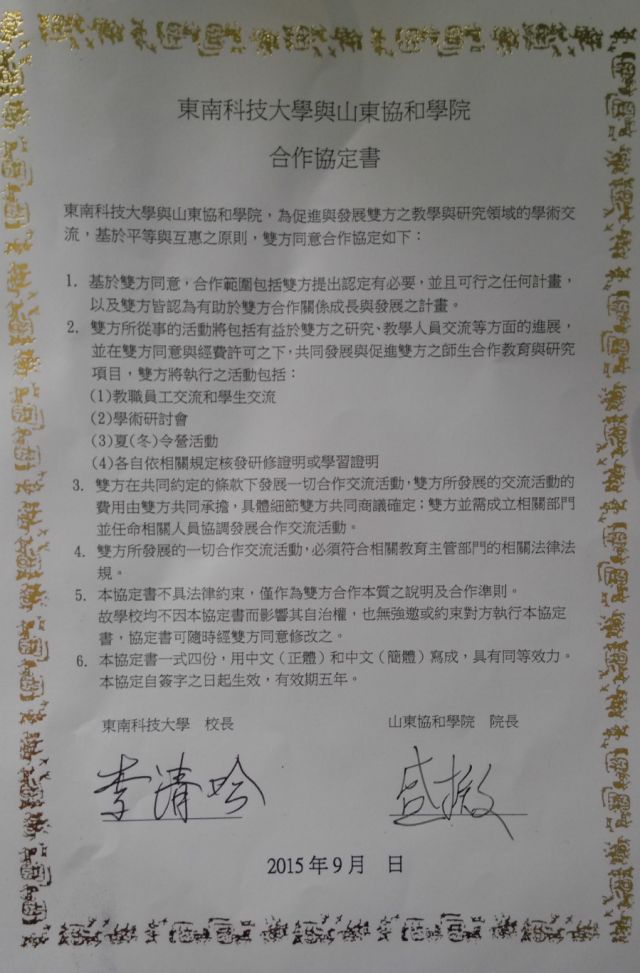 東南科技大學與山東協和學院
合作協定書
東南科技大學與山東協和學院，為促進與發展雙方之教學與研究領域的學術交
流，基於平等與互惠之原則，雙方同意合作協定如下：
1. 基於雙方同意，合作範圍包括雙方提出認定有必要，並且可行之任何計畫，
以及雙方皆認為有助於雙方合作關係成長與發展之計畫。
2. 雙方所從事的活動將包括有益於雙方之研究、教學人員交流等方面的進展，
並在雙方同意與經費許可之下，共同發展與促進雙方之師生合作教育與研究
項目，雙方將執行之活動包括：
(1)教職員工交流和學生交流
(2)學術研討會
(3)夏(冬)令營活動
(4)各自依相關規定核發研修證明或學習證明
3. 雙方在共同約定的條款下發展一切合作交流活動，雙方所發展的交流活動的
費用由雙方共同承擔，具體細節雙方共同商議確定；雙方並需成立相關部門
並任命相關人員協調發展合作交流活動。
4. 雙方所發展的一切合作交流活動，必須符合相關教育主管部門的相關法律法
規。
5. 本協定書不具法律約束，僅作為雙方合作本質之說明及合作準則。
故學校均不因本協定書而影響其自治權，也無強邀或約束對方執行本協定
書，協定書可隨時經雙方同意修改之。
6. 本協定書一式四份，用中文（正體）和中文（簡體）寫成，具有同等效力。
本協定自簽字之日起生效，有效期五年。
東南科技大學 校長
山東協和學院 院長
李清吟
盛振文
2015 年 9 月 日